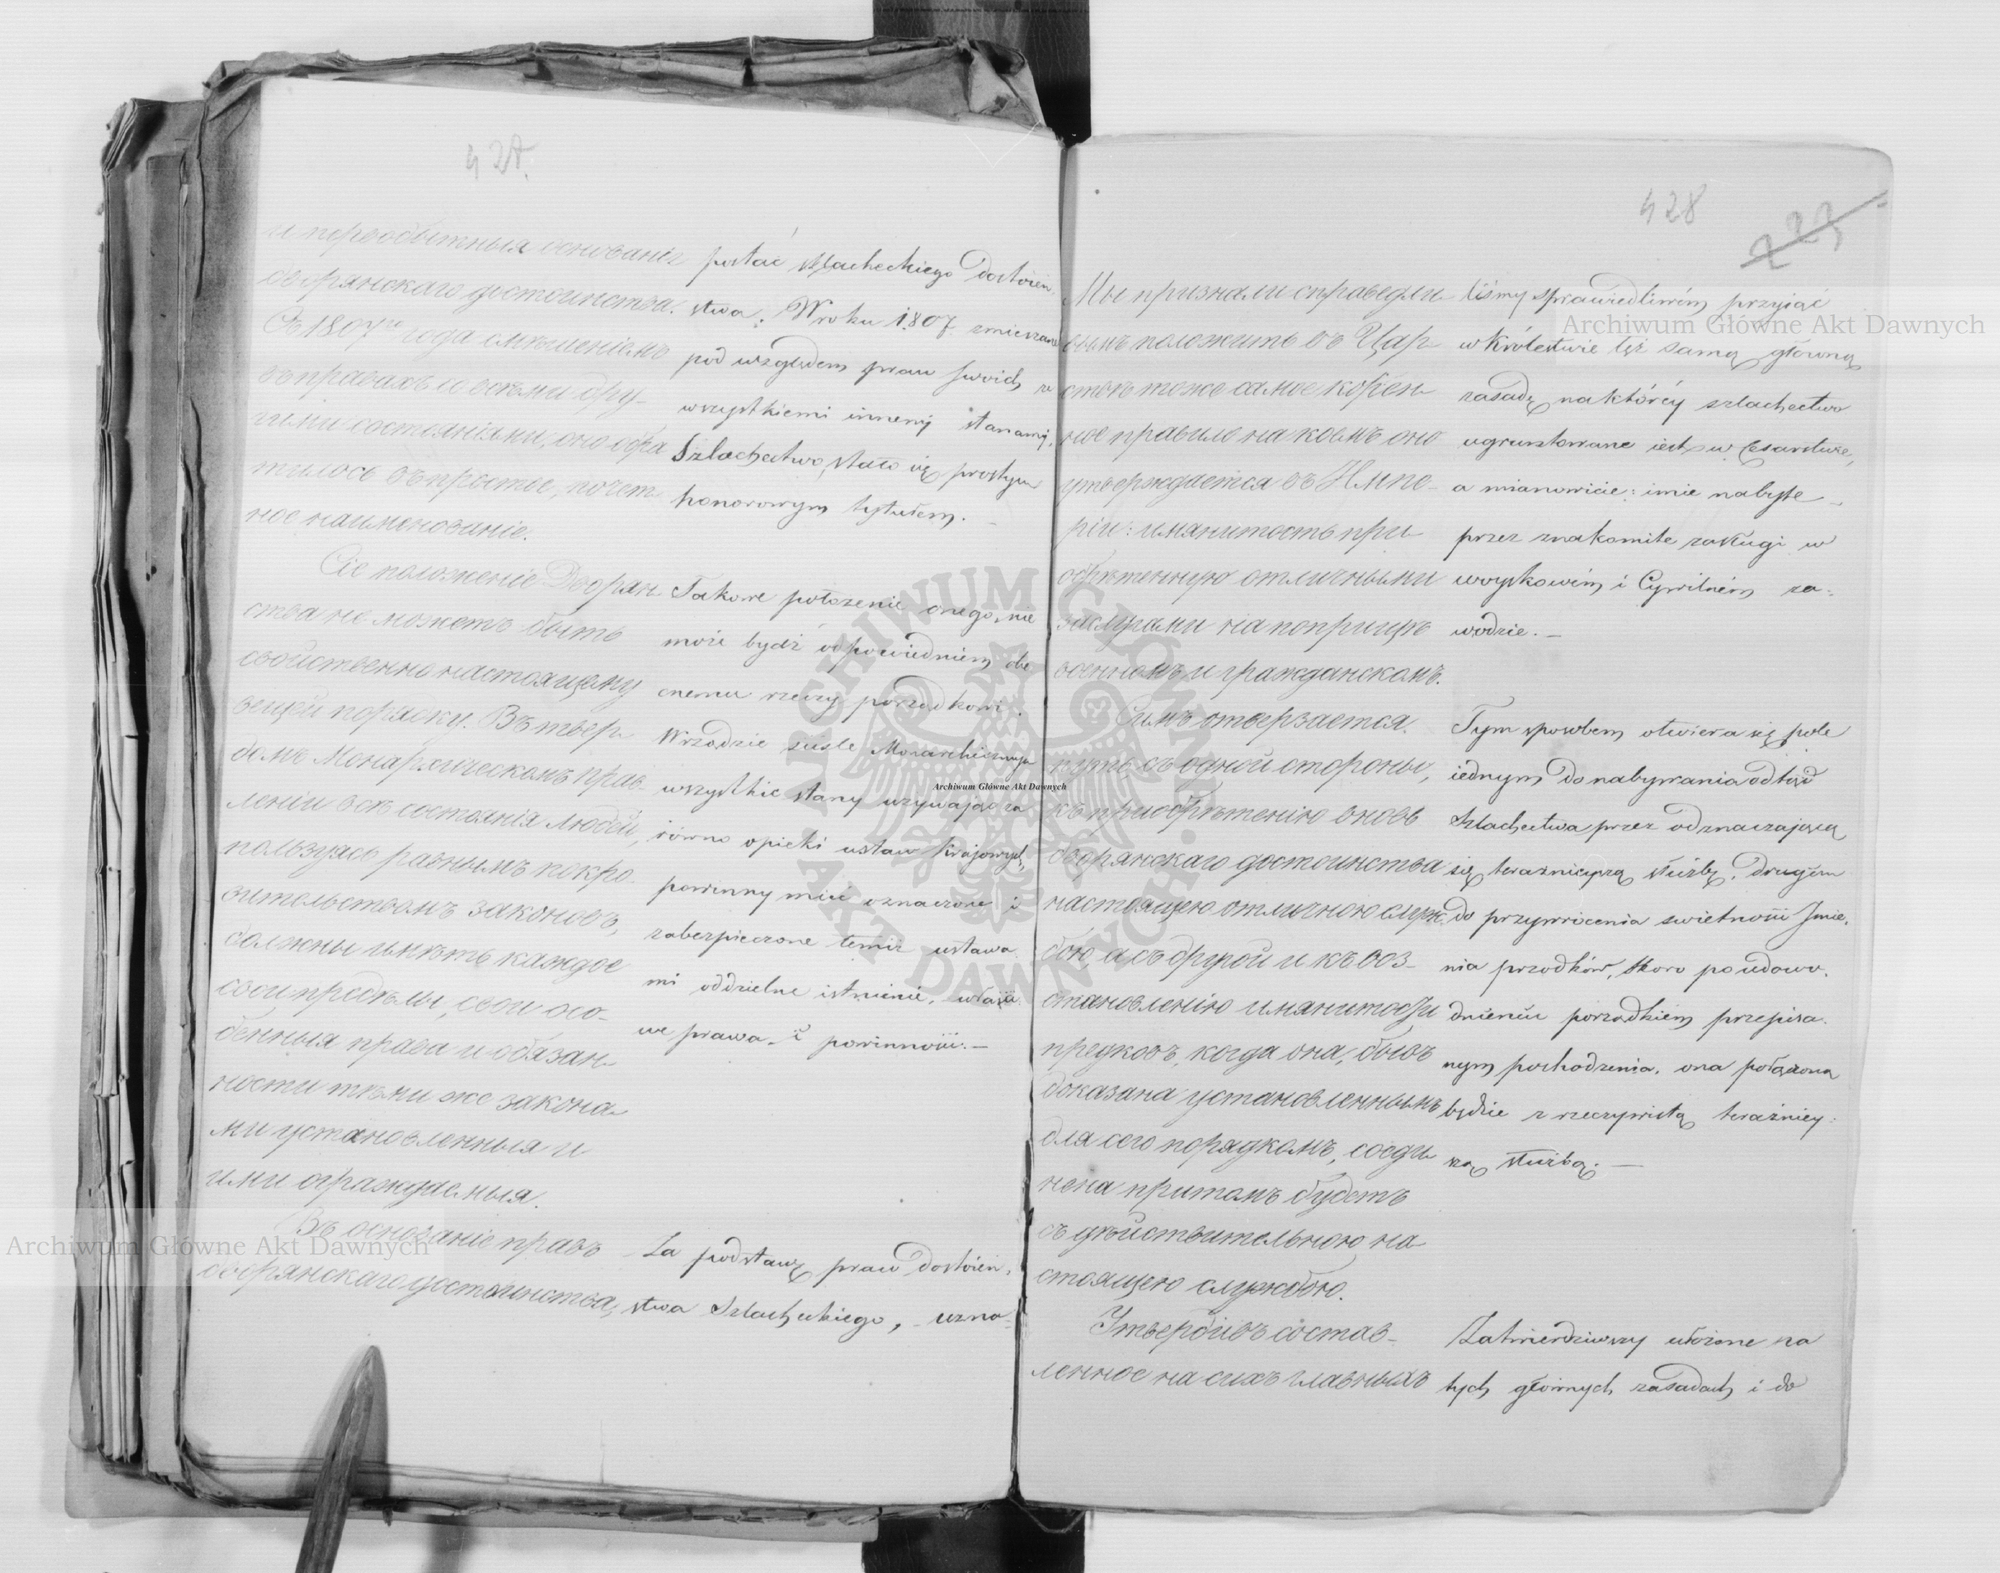 427.
и первобытныя основанія
дворянскаго достоинства.
Съ 1807го года смѣшеніемъ
въ правахъ со всѣми дру-
гими состояніями, оно обра
тилось въ простое, почет-
ное наименованіе.
Сіе положеніе Дворян
ства не можетъ быть
свойственно настоящему
вещей порядку. Въ твер
домъ Монархическомъ прав
леніи всѣ состоянія людей,
пользуясь равнымъ покро
вительствомъ законовъ,
должны имѣть каждое
свои предѣлы, свои осо-
бенныя права и обязан
ности тѣми же закона
ми установленныя и
ими ограждаемыя.
Въ основаніе правъ
дворянскаго достоинства,
postać szlacheckiego Dostoień
stwa. W roku 1807 zmieszane
pod względem praw swoich z
wszystkiemi innemi stanami,
Szlachectwo, stało się prostym
honorowym tytułem. –
Takowe położenie onego, nie
może bydź odpowiedniem obe
cnemu rzeczy porządkowi.
W rządzie ściśle Monarchicznym
wszystkie stany używając za
równo opieki ustaw krajowych,
powinny mieć oznaczone i
zabezpieczone temiż ustawa
mi oddzielne istnienie, właści
we prawa i powinności. –
Za podstawę praw dostoień,
stwa Szlacheckiego, uzna
428
223
Мы признали справедли
вымъ положить въ Цар
ствѣ тоже самое корен
ное правило на коемъ оно
утверждается въ Импе-
ріи: имянитость прі
обрѣтенную отличными
заслугами на поприщѣ
военномъ и гражданскомъ.
Симъ отверзается
путь, съ одной стороны,
къ пріобрѣтенію вновь
дворянскаго достоинства
настоящею отличною служ
бою, а съ другой и къ воз-
становленію имянитости
предковъ, когда она, бывъ
доказана установленнымъ
для сего порядкомъ, соеди
нена притомъ будетъ
съ дѣйствительною на
стоящею службою.
Утвердивъ состав-
ленное на сихъ главныхъ
liśmy sprawiedliwém przyjąć
w Królestwie też samą główną
zasadę na któréy szlachectwo
ugruntowane iest w Cesarstwie,
a mianowicie: imie nabyte
przez znakomite zasługi w
woyskowém i Cywilném za-
wodzie. –
Tym sposobem otwiera się pole
iednym do nabywania odtąd
Szlachectwa przez odznaczającą
się teraźnieyszą służbę, drugim
do przywrócenia swietności Imie,
nia przodków, skoro po udowo,
dnieniu porządkiem przepisa,
nym pochodzenia, ona połączona
będzie z rzeczywistą teraźniey-
szą służbą. –
Zatwierdziwszy ułożone na
tych głównych zasadach i do
Archiwum Główne Akt Dawnych
Archiwum Główne Akt Dawnych
Archiwum Główne Akt Dawnych
ARCHIWUM GŁÓWNE AKT DAWNYCH